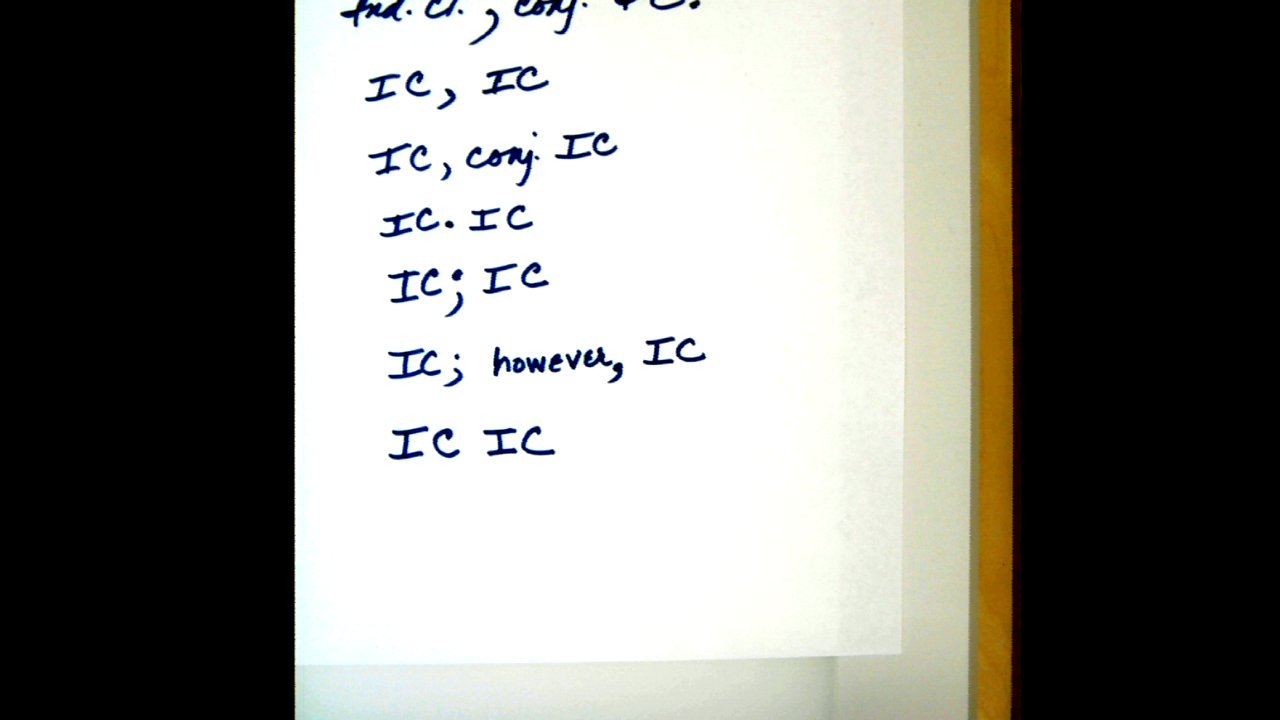 Ind. Cl., conj. IC.
IC, IC
IC, conj. IC
IC. IC
IC; IC
IC; however, IC
IC IC